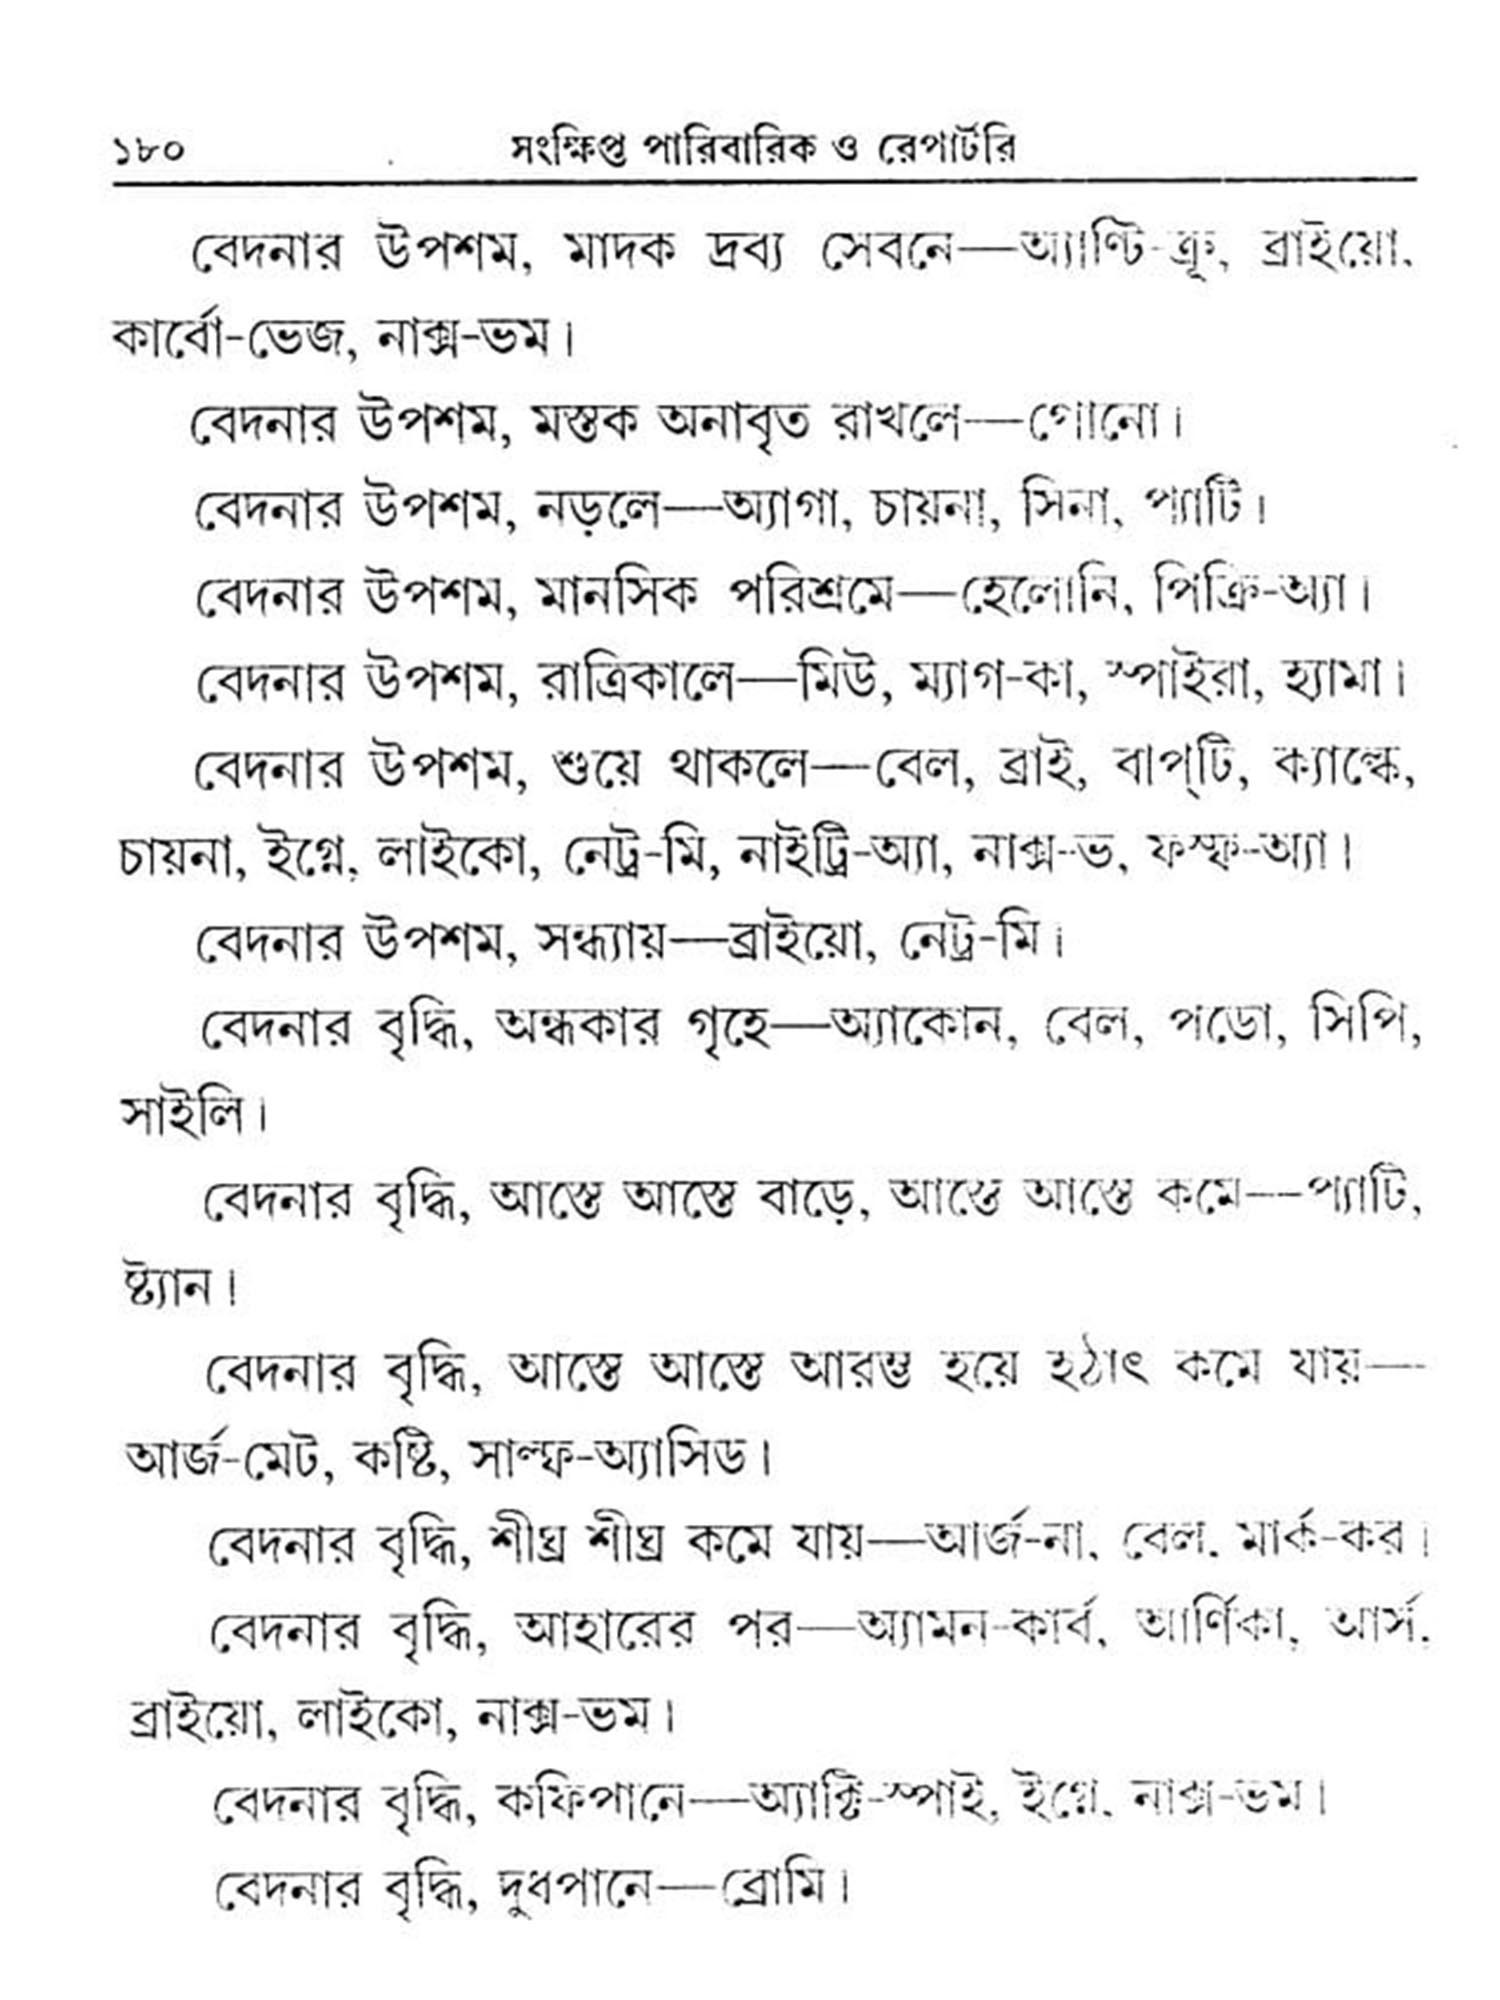 ১৮০ সংক্ষিপ্ত পারিবারিক ও রেপার্টরি
বেদনার উপশম, মাদক দ্রব্য সেবনে—অ্যাণ্টি-ক্রূ, ব্রাইয়ো,
কার্বো-ভেজ, নাক্স-ভম।
বেদনার উপশম, মস্তক অনাবৃত রাখলে—গোনো।
বেদনার উপশম, নড়লে—অ্যাগা, চায়না, সিনা, প্যাটি।
বেদনার উপশম, মানসিক পরিশ্রমে—হেলোনি, পিক্রি-অ্যা।
বেদনার উপশম, রাত্রিকালে—মিউ, ম্যাগ-কা, স্পাইরা, হ্যামা।
বেদনার উপশম, শুয়ে থাকলে—বেল, ব্রাই, বাপ্‌টি, ক্যাল্কে,
চায়না, ইগ্নে, লাইকো, নেট্র-মি, নাইট্রি-অ্যা, নাক্স-ভ, ফস্ফ-অ্যা।
বেদনার উপশম, সন্ধ্যায়—ব্রাইয়ো, নেট্র-মি।
বেদনার বৃদ্ধি, অন্ধকার গৃহে—অ্যাকোন, বেল, পডো, সিপি,
সাইলি।
বেদনার বৃদ্ধি, আস্তে আস্তে বাড়ে, আস্তে আস্তে কমে—প্যাটি,
ষ্ট্যান।
বেদনার বৃদ্ধি, আস্তে আস্তে আরম্ভ হয়ে হঠাৎ কমে যায়—
আর্জ-মেট, কষ্টি, সাল্ফ-অ্যাসিড।
বেদনার বৃদ্ধি, শীঘ্র শীঘ্র কমে যায়—আর্জ-না, বেল, মার্ক-কর।
বেদনার বৃদ্ধি, আহারের পর—অ্যামন-কার্ব, আর্ণিকা, আর্স,
ব্রাইয়ো, লাইকো, নাক্স-ভম।
বেদনার বৃদ্ধি, কফিপানে—অ্যাক্টি-স্পাই, ইগ্নে, নাক্স-ভম।
বেদনার বৃদ্ধি, দুধপানে—ব্রোমি।